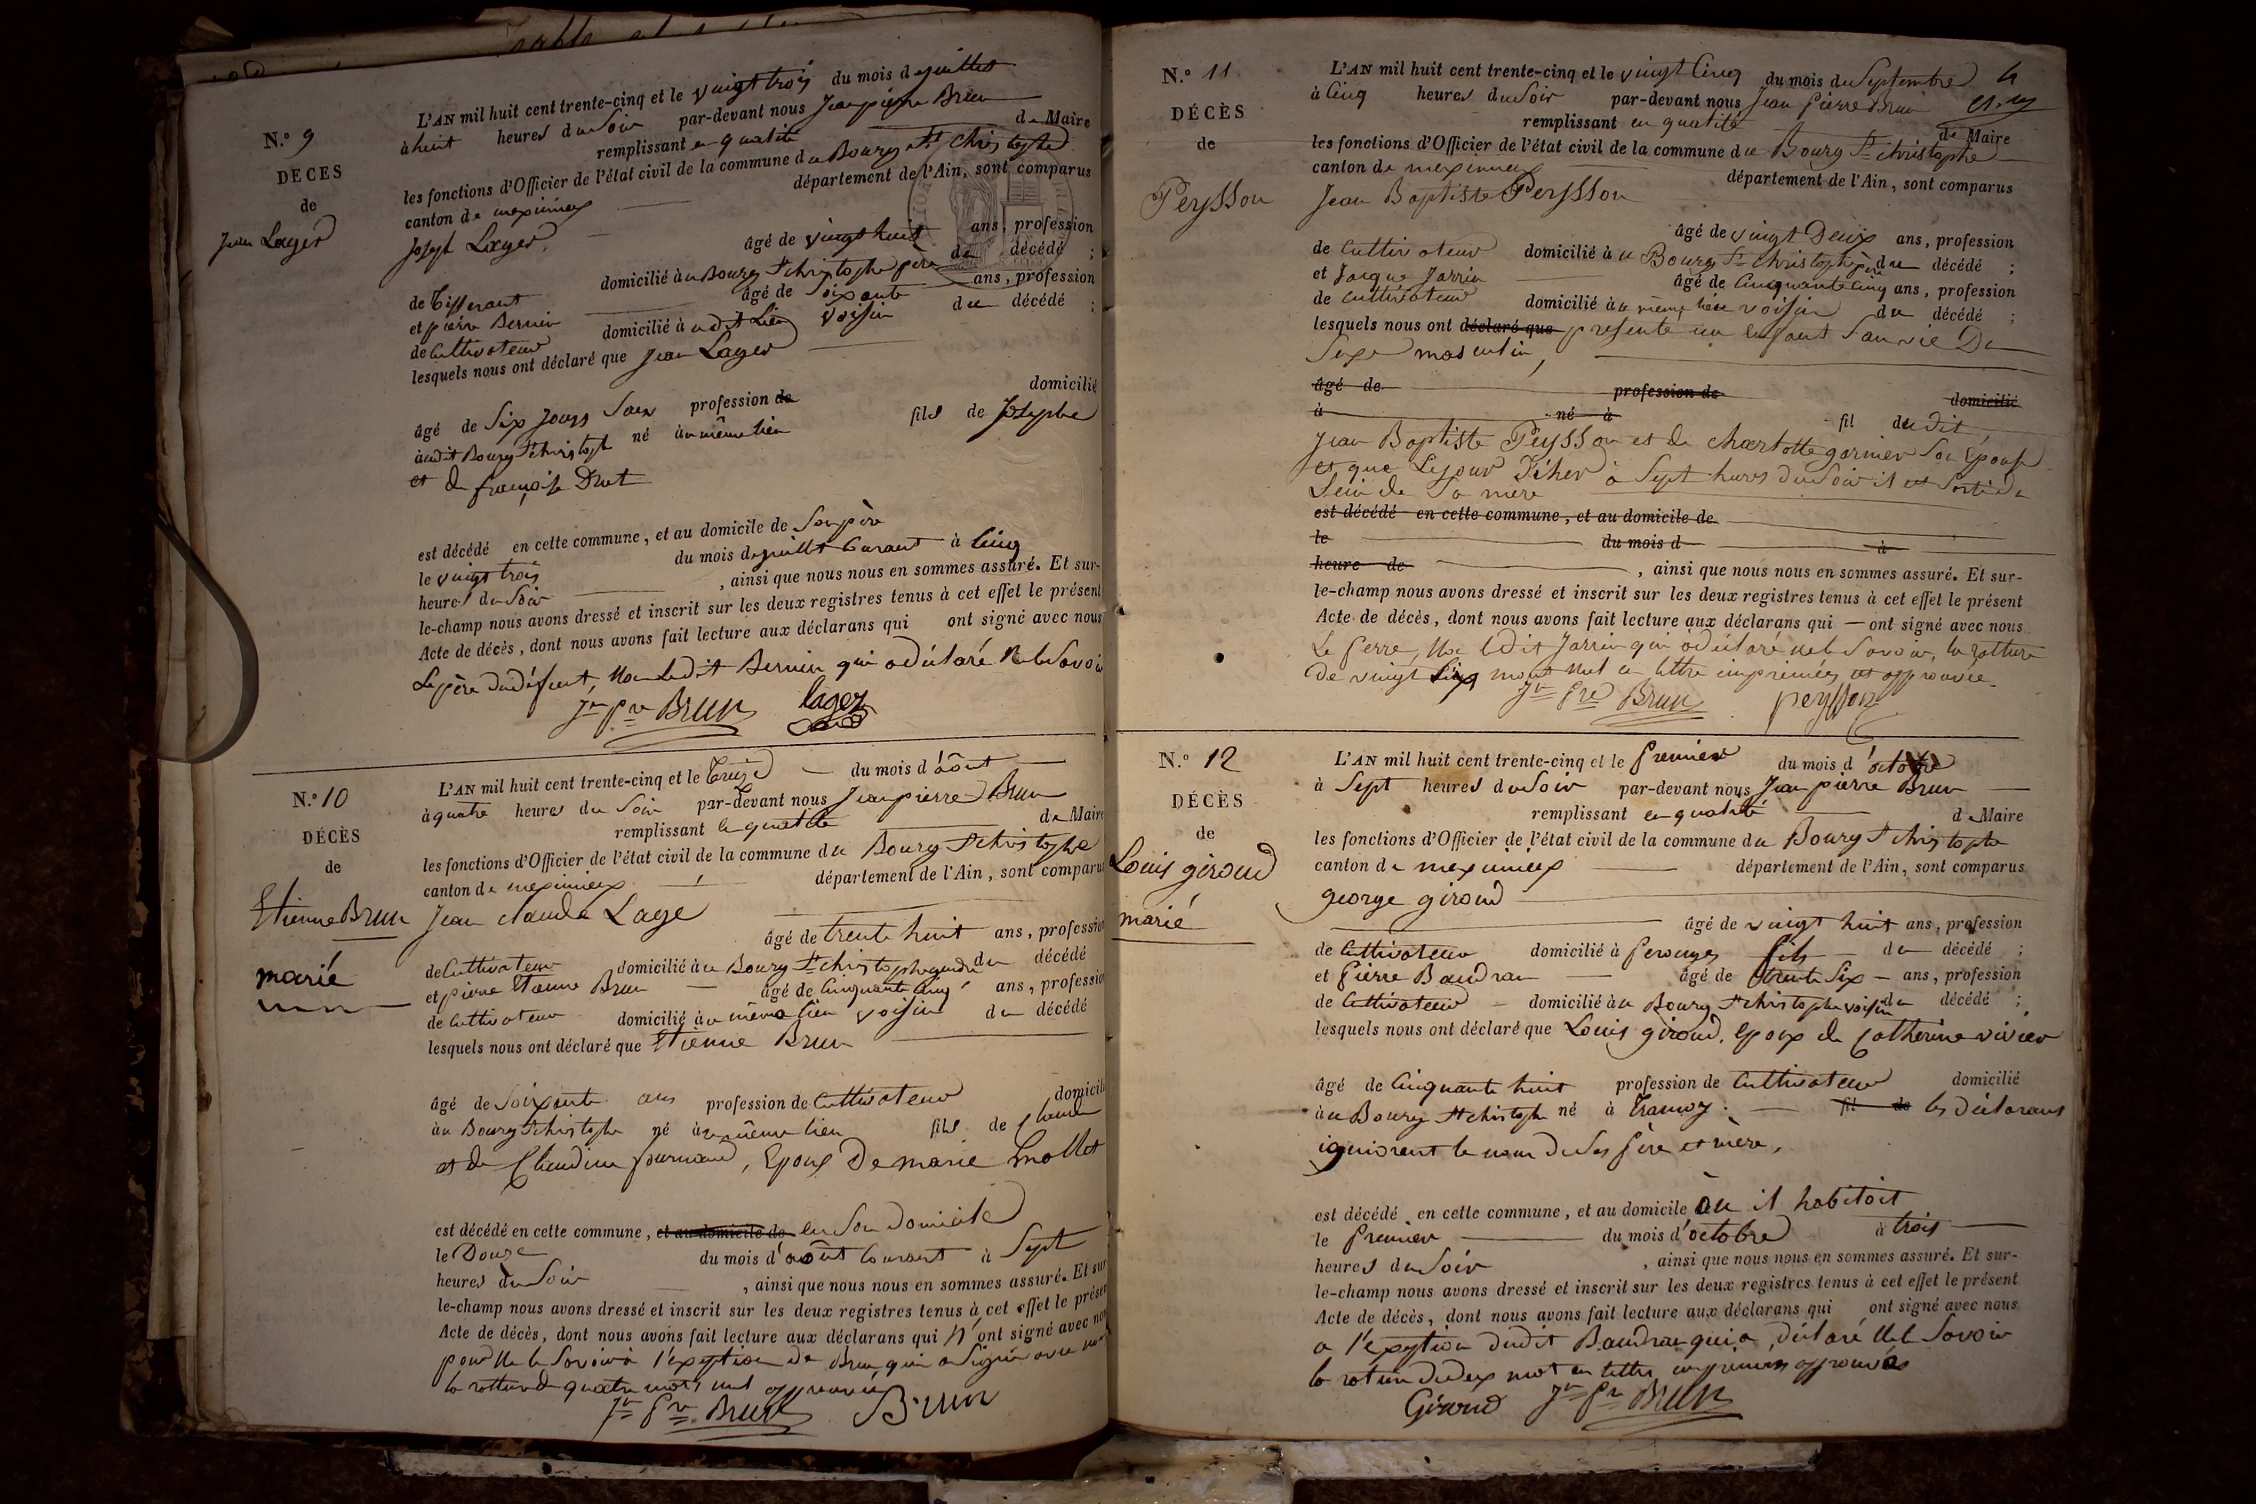 N.º 9
DÉCÈS
de
Jean Lager
L'AN mil huit cent trente-cinq et le vingt trois du mois de juillet
à huit heures du Soir par-devant nous Jean pierre Brun
remplissant en qualité de Maire
les fonctions d'Officier de l'état civil de la commune du Bourg St christophe
canton de meximieux département de l'Ain, sont comparus
Joseph Lager,
âgé de vingt huit ans, profession
de Tisserant domicilié au Bourg St christophe père du décédé ;
et pierre Bernin âgé de Soixante ans, profession
de Cultivateur domicilié à udit Lieu voisin du décédé ;
lesquels nous ont déclaré que Jean Lager
âgé de Six Jours Sans profession de domicilié
audit Bourg St christophe né au même lieu fils de Josephe
et de françoise Drut
est décédé en cette commune, et au domicile de Son père
le vingt trois du mois de juillet Courant à Cinq
heures du Soir , ainsi que nous nous en sommes assuré. Et sur-
le-champ nous avons dressé et inscrit sur les deux registres tenus à cet effet le présent
Acte de décès, dont nous avons fait lecture aux déclarans qui ont signé avec nous
Le père du défunt, Non Ledit Bernin qui a déclaré Ne le Savoir
Jn Pre Brun lager
N.º 10
DÉCÈS
de
Etienne Brun
marié
L'AN mil huit cent trente-cinq et le Treize du mois d'août
à quatre heures du Soir par-devant nous Jean pierre Brun
remplissant en qualité de Maire
les fonctions d'Officier de l'état civil de la commune du Bourg St christophe
canton de meximieux département de l'Ain, sont comparus
Jean claude Lage
âgé de trente huit ans, profession
de Cultivateur domicilié au Bourg St christophe gendre du décédé
et pierre Etienne Brun âgé de Cinquante Cinq ans, profession
de Cultivateur domicilié au même lieu voisin du décédé
lesquels nous ont déclaré que Etienne Brun
âgé de Soixante ans profession de Cultivateur domicilié
au Bourg St christophe né au même lieu fils de Claude
et de Claudine fournand, Epoux De marie mollet
est décédé en cette commune, et au domicile de en Son Domicile
le Douze du mois d'août Courant à Sept
heures du Soir , ainsi que nous nous en sommes assuré. Et sur
le-champ nous avons dressé et inscrit sur les deux registres tenus à cet effet le présen
Acte de décès, dont nous avons fait lecture aux déclarans qui N'ont signé avec nou
pour Ne le Savoir à l'exeption de Brun qui a Signé avec nous
la rotture de quatre mots nul approuvée
Jn Pre Brun Brun
N.º 11
DÉCÈS
de
Peysson
4
L'AN mil huit cent trente-cinq et le vingt Cinq du mois du Septembre
à Cinq heures du Soir par-devant nous Jean Pierre Brun
remplissant en qualité de Maire
les fonctions d'Officier de l'état civil de la commune du Bourg St christophe
canton de meximieux département de l'Ain, sont comparus
Jean Baptiste Peysson
âgé de vingt Deux ans, profession
de Cultivateur domicilié au Bourg St christophe père du décédé ;
et Jacque Jarrin âgé de Cinquante Cinq ans, profession
de Cultivateur domicilié au même lieu voisin du décédé ;
lesquels nous ont déclaré que présenté un enfant Sans vie Du
Sexe masculin,
âgé de profession de domicilié
à né à fil du dit
Jean Baptiste Peysson et de charlotte garnier Son Epouse
et que Le jour D'hier à Sept heures du Soir il est Sorti du
Sein de Sa mère
est décédé en cette commune, et au domicile de
le du mois d à
heure de , ainsi que nous nous en sommes assuré. Et sur-
le-champ nous avons dressé et inscrit sur les deux registres tenus à cet effet le présent
Acte de décès, dont nous avons fait lecture aux déclarans qui ont signé avec nous
Le Perre, Non ledit Jarrin qui a déclaré ne le Savoir, la rotture
de vingt Cinq mots nul en lettre imprimées est approuvée
Jn Pre Brun peysson
N.º 12
DÉCÈS
de
Louis giroud
marié
L'AN mil huit cent trente-cinq et le Premier du mois d'octobre
à Sept heures du Soir par-devant nous Jean pierre Brun
remplissant en qualité de Maire
les fonctions d'Officier de l'état civil de la commune du Bourg St christophe
canton de meximieux département de l'Ain, sont comparus
george giroud
âgé de vingt huit ans, profession
de Cultivateur domicilié à Perouges fils du décédé ;
et Pierre Baudran âgé de trente Six ans, profession
de Cultivateur domicilié au Bourg St christophe voisin du décédé ;
lesquels nous ont déclaré que Louis giroud, Epoux de Catherine vivier
âgé de Cinquante huit profession de Cultivateur domicilié
au Bourg St christophe né à Tramoy. fil de les déclarans
ignorent le nom de Ses Père et mère,
est décédé en cette commune, et au domicile ou il habitoit
le Premier du mois d'octobre à trois
heures du Soir , ainsi que nous nous en sommes assuré. Et sur-
le-champ nous avons dressé et inscrit sur les deux registres tenus à cet effet le présent
Acte de décès, dont nous avons fait lecture aux déclarans qui ont signé avec nous
a l'exeption dudit Baudran qui a déclaré Ne le Savoir
la roture de deux mot en lettre imprimées approuvée
Giroud Jn Pre Brun